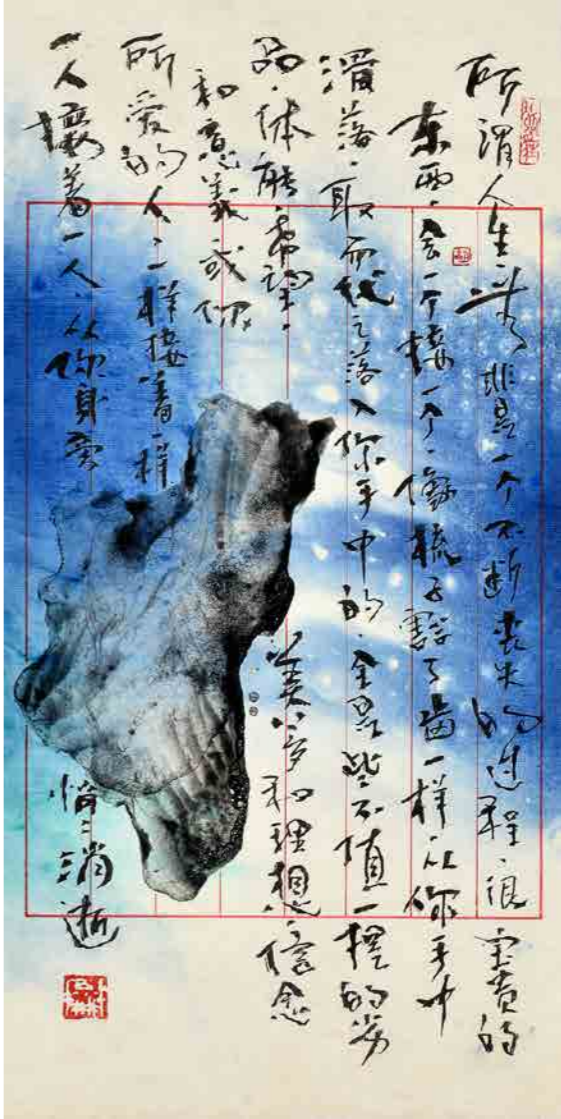 所谓人生，无非是一个不断丧失的过程．很宝贵的
东西，会一个接一个，像梳子豁了齿一样从你手中
滑落．取而代之落入你手中的．全是些不值一提的劣
品．体能．希望．美梦和理想，信念
和意义或你
所爱的人，一样接着一样
一人接着一人，从你身旁悄悄消逝